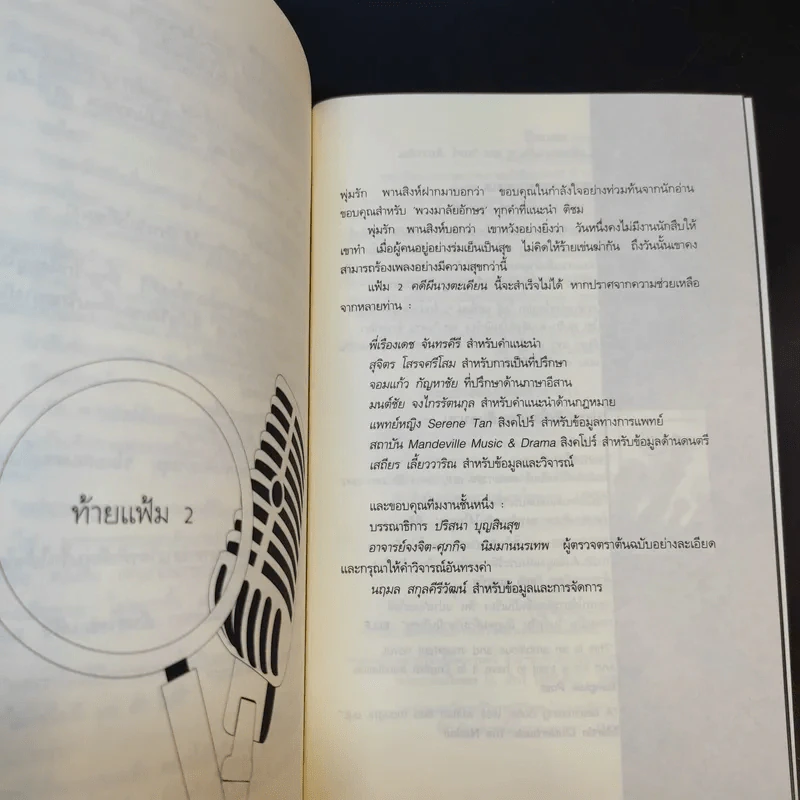 ท้ายแฟ้ม 2
พุ่มรัก พานสิงห์ฝากมาบอกว่า ขอบคุณในกำลังใจอย่างท่วมท้นจากนักอ่าน
ขอบคุณสำหรับ 'พวงมาลัยอักษร' ทุกคำที่แนะนำ ติชม
พุ่มรัก พานสิงห์บอกว่า เขาหวังอย่างยิ่งว่า วันหนึ่งคงไม่มีงานนักสืบให้
เขาทำ เมื่อผู้คนอยู่อย่างร่มเย็นเป็นสุข ไม่คิดให้ร้ายเข่นฆ่ากัน ถึงวันนั้นเขาคง
สามารถร้องเพลงอย่างมีความสุขกว่านี้
แฟ้ม 2 คดีผีนางตะเคียน นี้จะสำเร็จไม่ได้ หากปราศจากความช่วยเหลือ
จากหลายท่าน :
พี่เรืองเดช จันทรคีรี สำหรับคำแนะนำ
สุจิตร โสรจศรีโสม สำหรับการเป็นที่ปรึกษา
จอมแก้ว กัญหาชัย ที่ปรึกษาด้านภาษาอีสาน
มนต์ชัย จงไกรรัตนกุล สำหรับคำแนะนำด้านกฎหมาย
แพทย์หญิง Serene Tan สิงคโปร์ สำหรับข้อมูลทางการแพทย์
สถาบัน Mandeville Music & Drama สิงคโปร์ สำหรับข้อมูลด้านดนตรี
เสถียร เลี้ยววาริณ สำหรับข้อมูลและวิจารณ์
และขอบคุณทีมงานชั้นหนึ่ง :
บรรณาธิการ ปริสนา บุญสินสุข
อาจารย์จงจิต-ศุภกิจ นิมมานนรเทพ ผู้ตรวจตราต้นฉบับอย่างละเอียด
และกรุณาให้คำวิจารณ์อันทรงค่า
นฤมล สกุลคีรีวัฒน์ สำหรับข้อมูลและการจัดการ